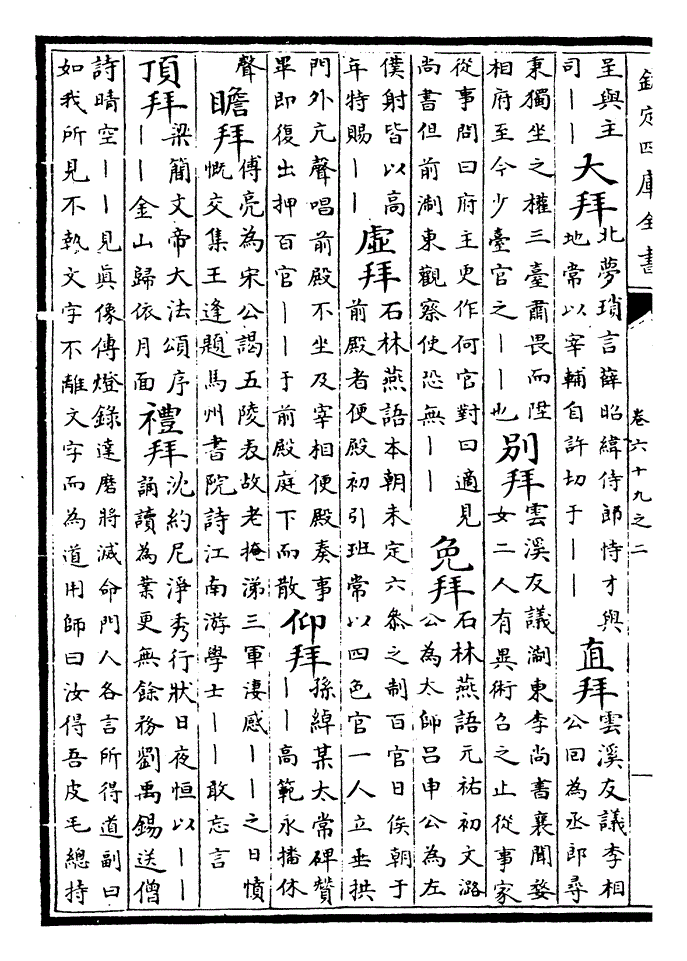 欽定四庫全書 卷六十九之二 一
呈與主
司｜｜
大拜
北夢瑣言薛昭緯侍郎恃才與
地常以宰輔自許切于｜｜
直拜
雲溪友議李相
公回為丞郎尋
秉獨坐之權三臺肅畏而陞
相府至今少臺官之｜｜也
別拜
雲溪友議淛東李尚書襃聞婺
女二人有異術召之止從事家
從事問曰府主更作何官對曰適見
尚書但前淛東觀察使恐無｜｜
免拜
石林燕語元祐初文潞
公為太師吕申公為左
僕射皆以高
年特賜｜｜
虛拜
石林燕語本朝未定六叅之制百官日俟朝于
前殿者便殿初引班常以四色官一人立垂拱
門外亢聲唱前殿不坐及宰相便殿奏事
畢即復出押百官｜｜于前殿庭下而散
仰拜
孫綽某太常碑贊
｜｜高範永播休
聲
瞻拜
傅亮為宋公謁五陵表故老掩涕三軍淒感｜｜之日憤
慨交集王逢題馬州書院詩江南游學士｜｜敢忘言
頂拜
梁簡文帝大法頌序
｜｜金山歸依月面
禮拜
沈約尼淨秀行狀日夜恒以｜｜
誦讀為業更無餘務劉禹錫送僧
詩晴空｜｜見真像傳燈錄達磨將滅命門人各言所得道副曰
如我所見不執文字不離文字而為道用師曰汝得吾皮毛總持